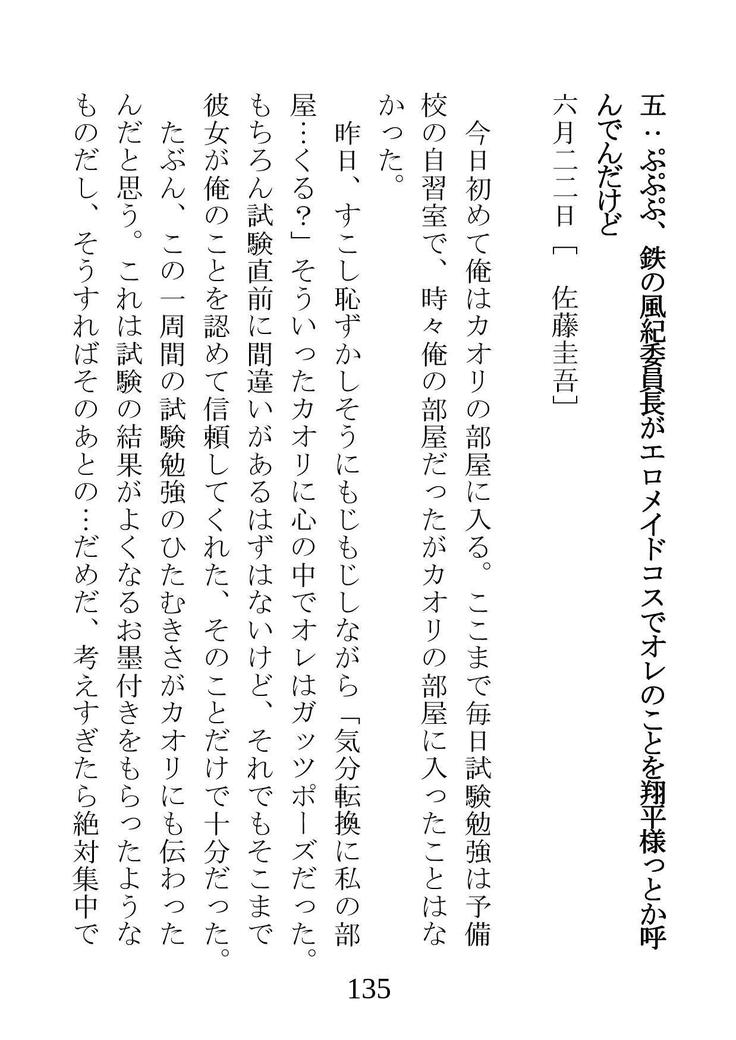 五：ぷぷぷ、鉄の風紀委員長がエロメイドコスでオレのことを翔平様っとか呼
んでんだけど
六月二二日［　佐藤圭吾］
　今日初めて俺はカオリの部屋に入る。ここまで毎日試験勉強は予備
校の自習室で、時々俺の部屋だったがカオリの部屋に入ったことはな
かった。
　昨日、すこし恥ずかしそうにもじもじしながら「気分転換に私の部
屋…くる？」そういったカオリに心の中でオレはガッツポーズだった。
もちろん試験直前に間違いがあるはずはないけど、それでもそこまで
彼女が俺のことを認めて信頼してくれた、そのことだけで十分だった。
　たぶん、この一周間の試験勉強のひたむきさがカオリにも伝わった
んだと思う。これは試験の結果がよくなるお墨付きをもらったような
ものだし、そうすればそのあとの…だめだ、考えすぎたら絶対集中で
135